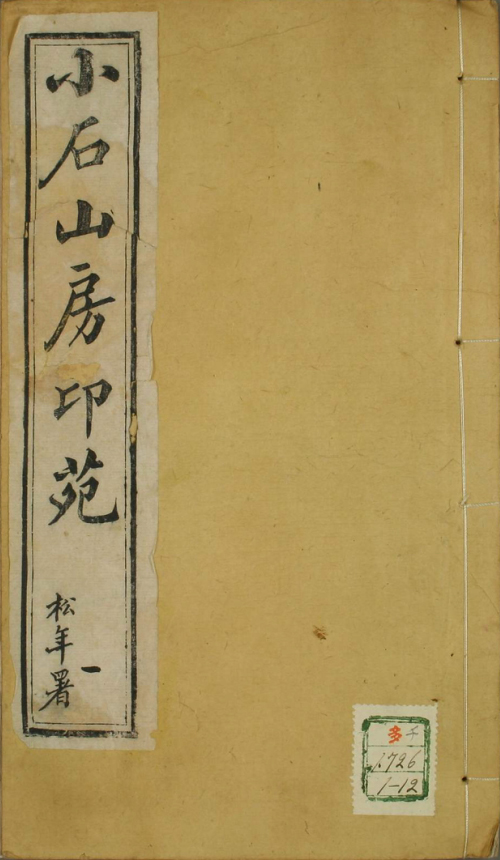 小石山房印苑
松年署
一
多 チ
1726
1-12